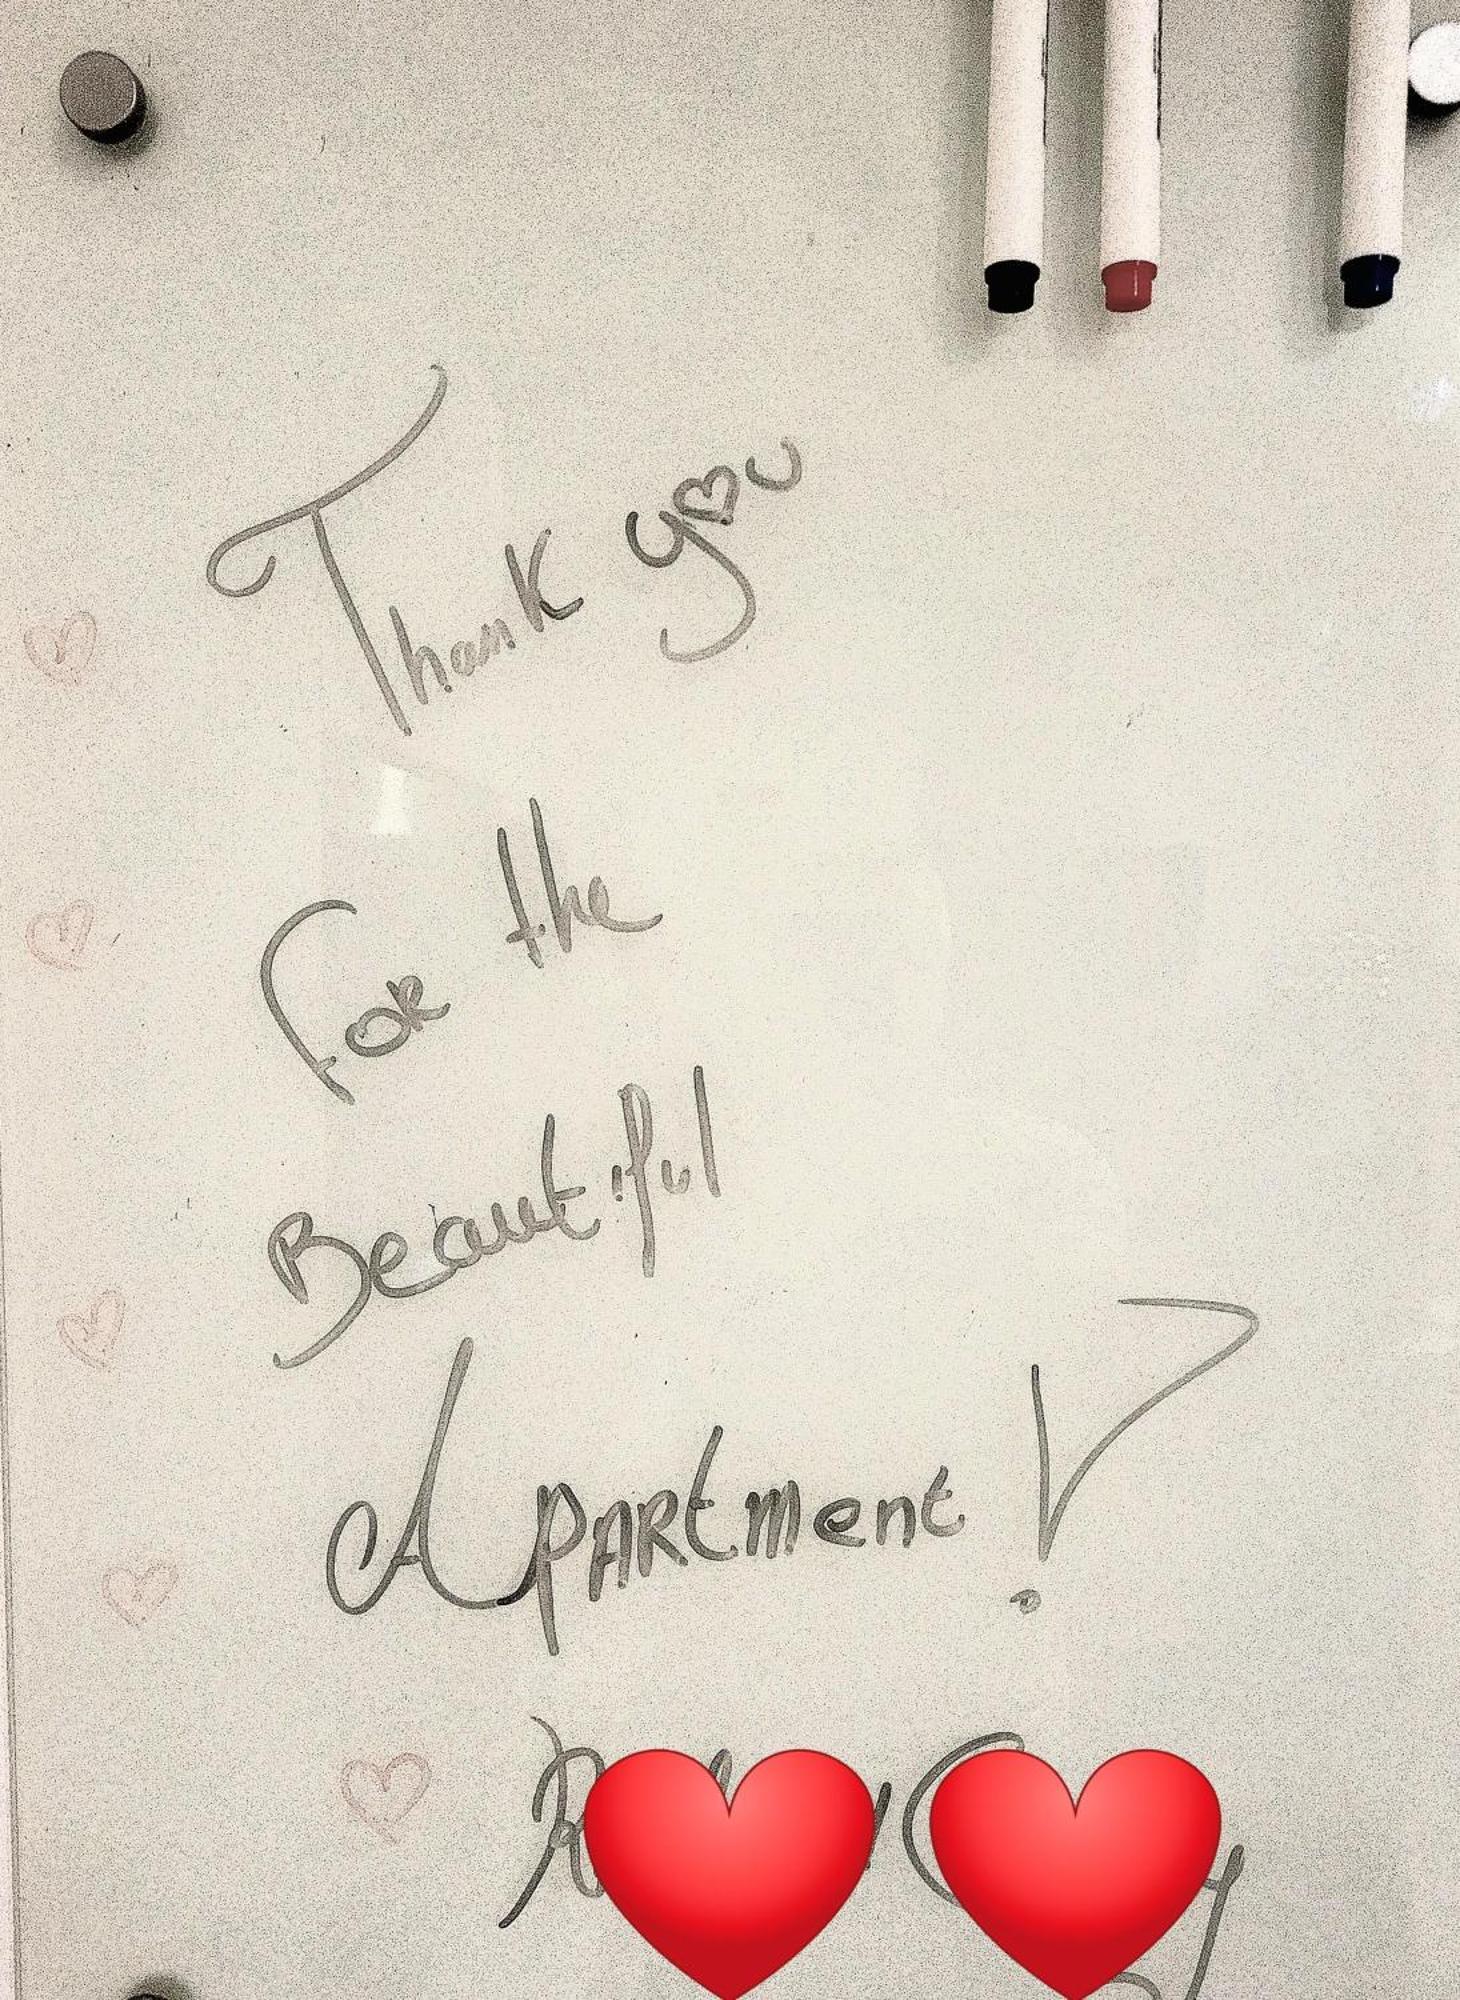 Thank you
For the
Beautiful
Apartment!